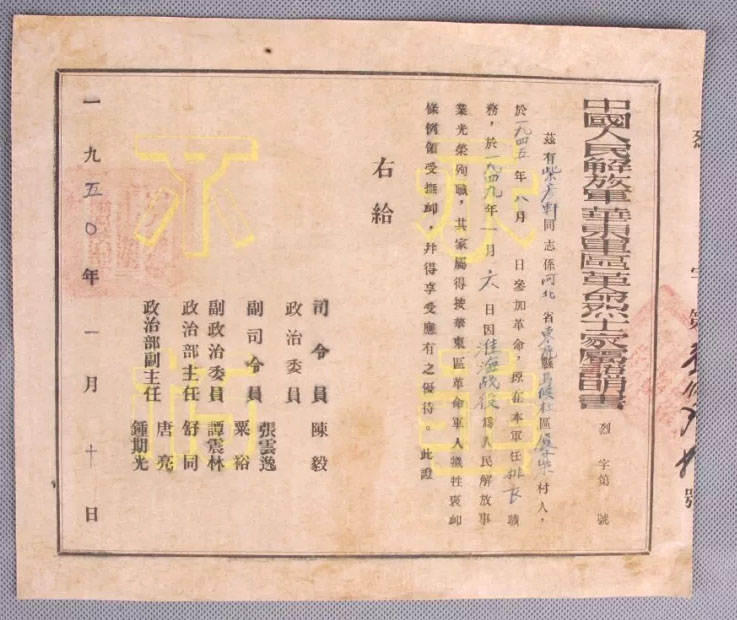 字第 號
中國人民解放軍華東軍區革命烈士家屬證明書
烈 字第 號
茲有柴彥軒同志係河北省東鹿縣 區 村人,
於一九四五年八月 日參加革命,原在本軍任排長職
務,於一九四九年一月六日因淮海战役爲人民解放事
業光榮殉職,其家屬得按華東區革命軍人犧牲褒卹
條例領受撫卹,幷得享受應有之優待。此證
右給
司令員 陳毅
政治委員
副司令員 張雲逸
粟裕
副政治委員 譚震林
政治部主任 舒同
政治部副主任 唐亮
鍾期光
一九五〇年一月十日
永垂
不朽